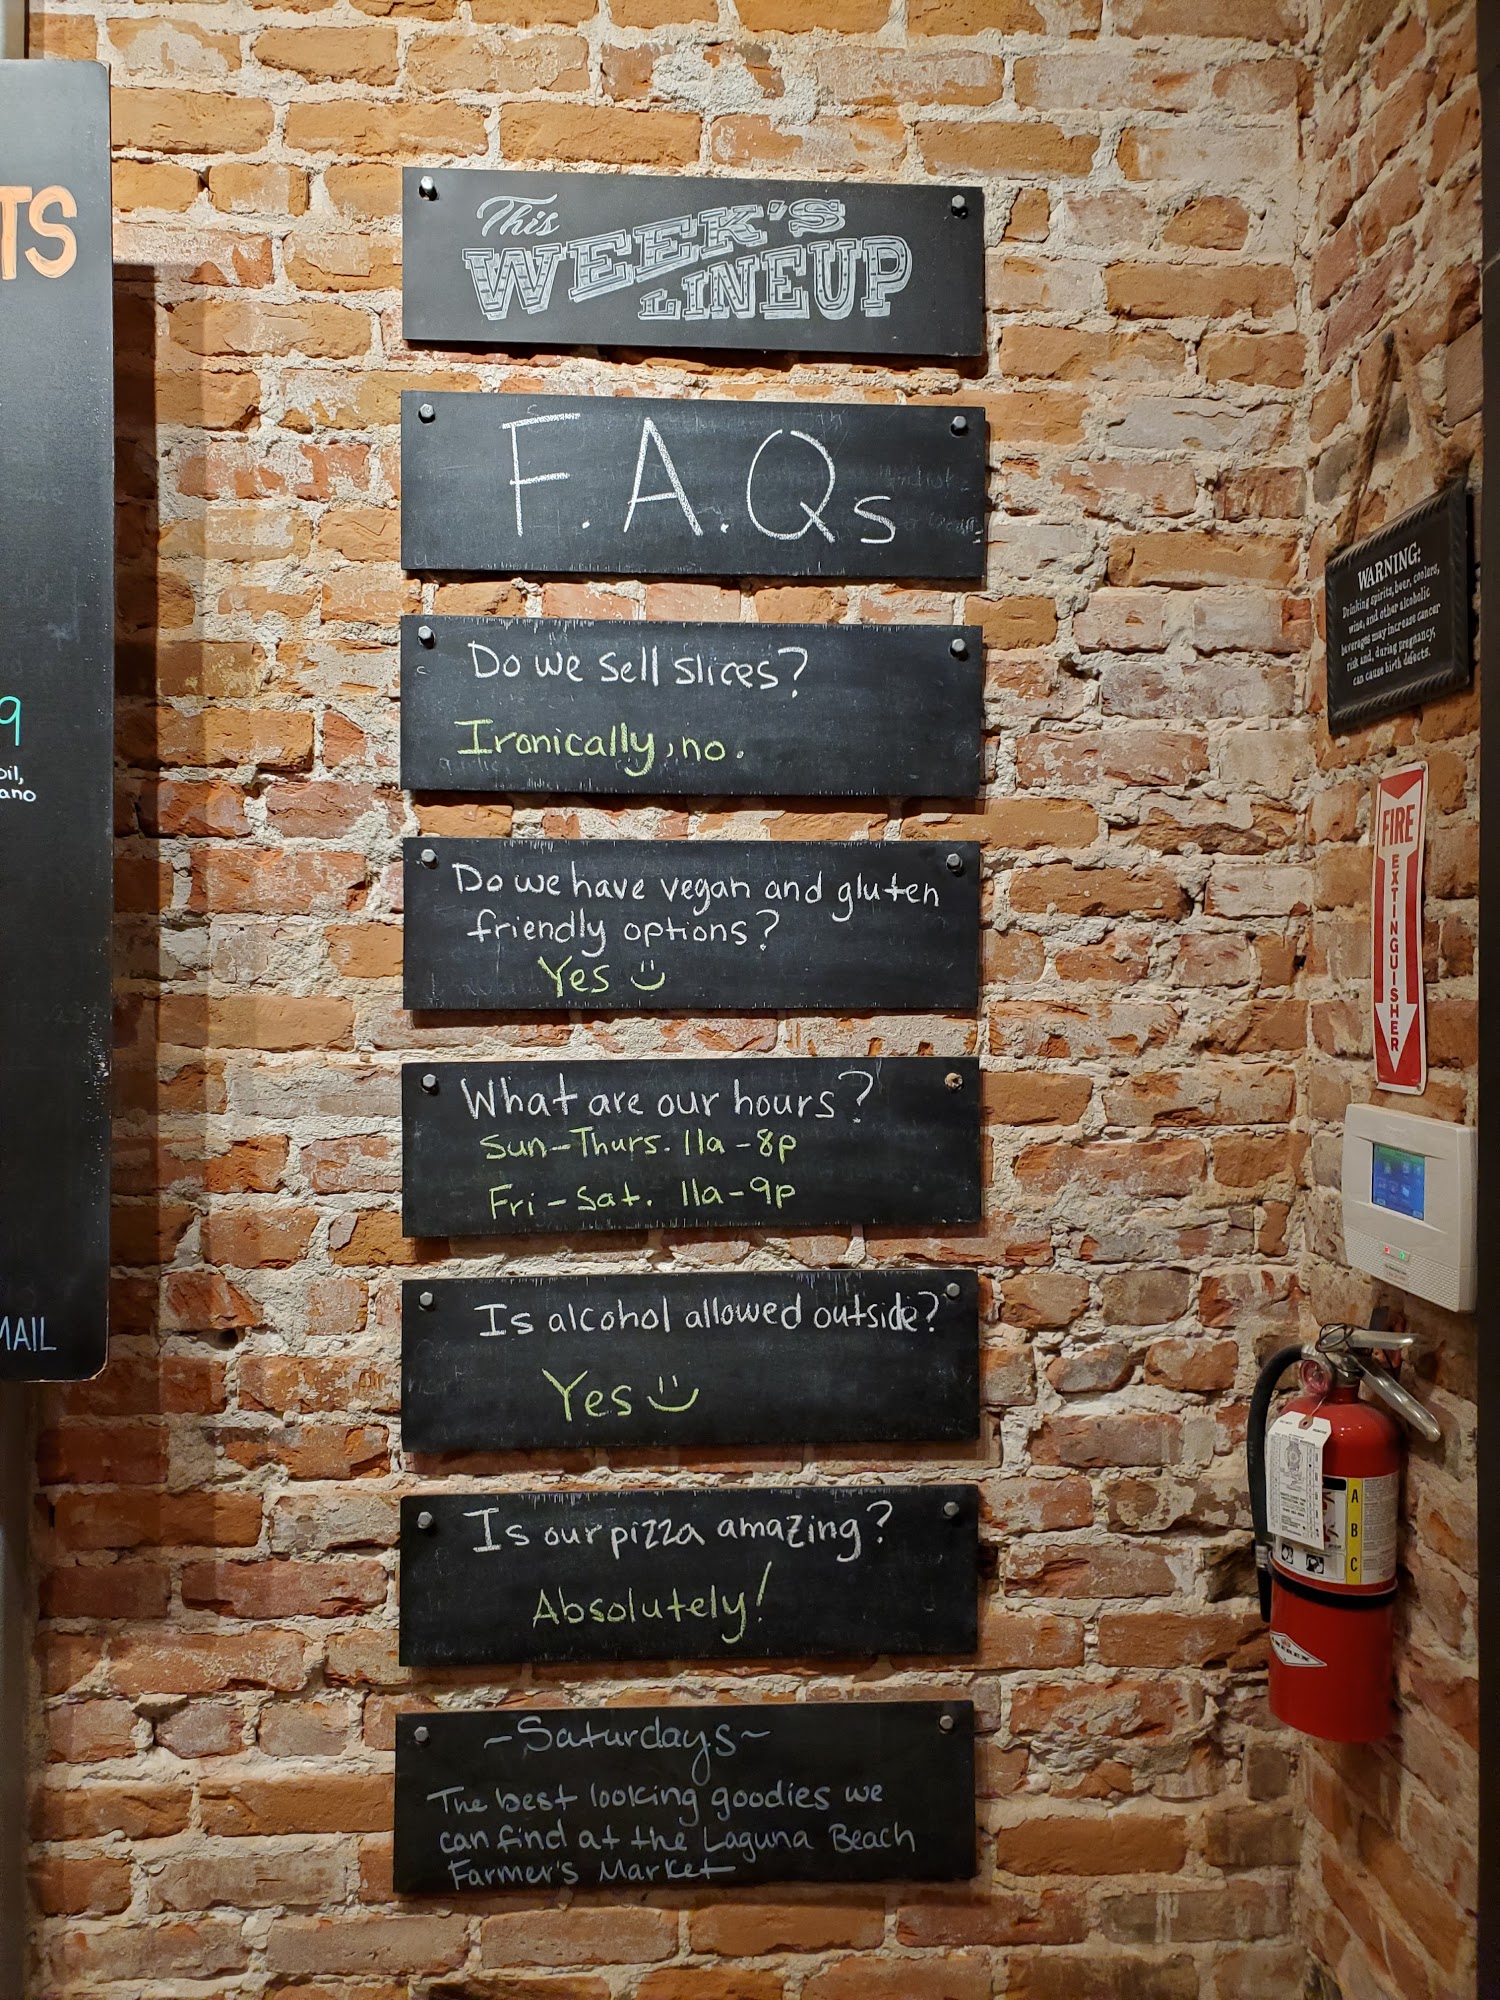 TS
9
oil,
ano
MAIL
This
WEEK'S
LINEUP
F.A.Qs
Do we sell slices?
Ironically, no.
Do we have vegan and gluten
friendly options?
Yes
What are our hours?
Sun-Thurs. 11a-8p
Fri-Sat. 11a-9p
Is alcohol allowed outside?
Yes
Is our pizza amazing?
Absolutely!
~Saturdays~
The best looking goodies we
can find at the Laguna Beach
Farmer's Market
WARNING:
Drinking spirits, beer, coolers,
wine, and other alcoholic
beverages may increase cancer
risk and, during pregnancy,
can cause birth defects.
FIRE
EXTINGUISHER
A
B
C